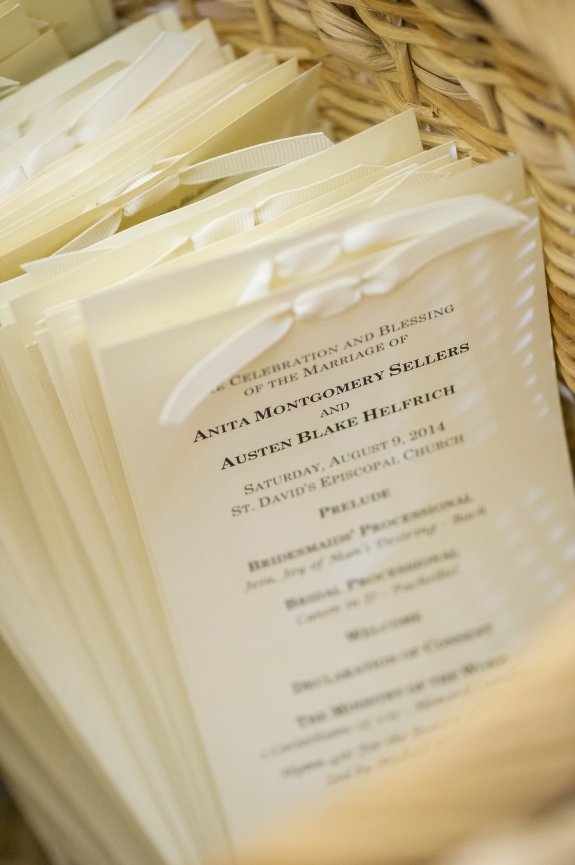 Celebration and Blessing
of the Marriage of
Anita Montgomery Sellers
and
Austen Blake Helfrich
Saturday, August 9, 2014
St. David's Episcopal Church
Prelude
Bridesmaids' Processional
Jesu, Joy of Man's Desiring - Bach
Bridal Processional
Canon in D - Pachelbel
Welcome
Declaration of Consent
The Ministry of the Word